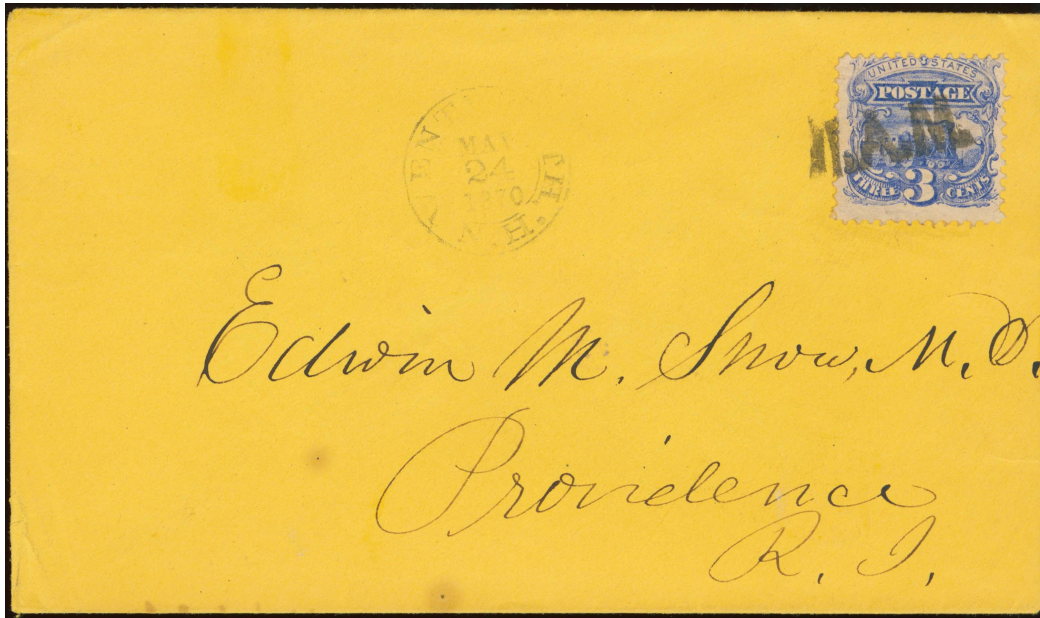 UNITED STATES
POSTAGE
THREE 3 CENTS
24
1870
N.H.
Edwin M. Snow, M.D.
Providence
R. I.